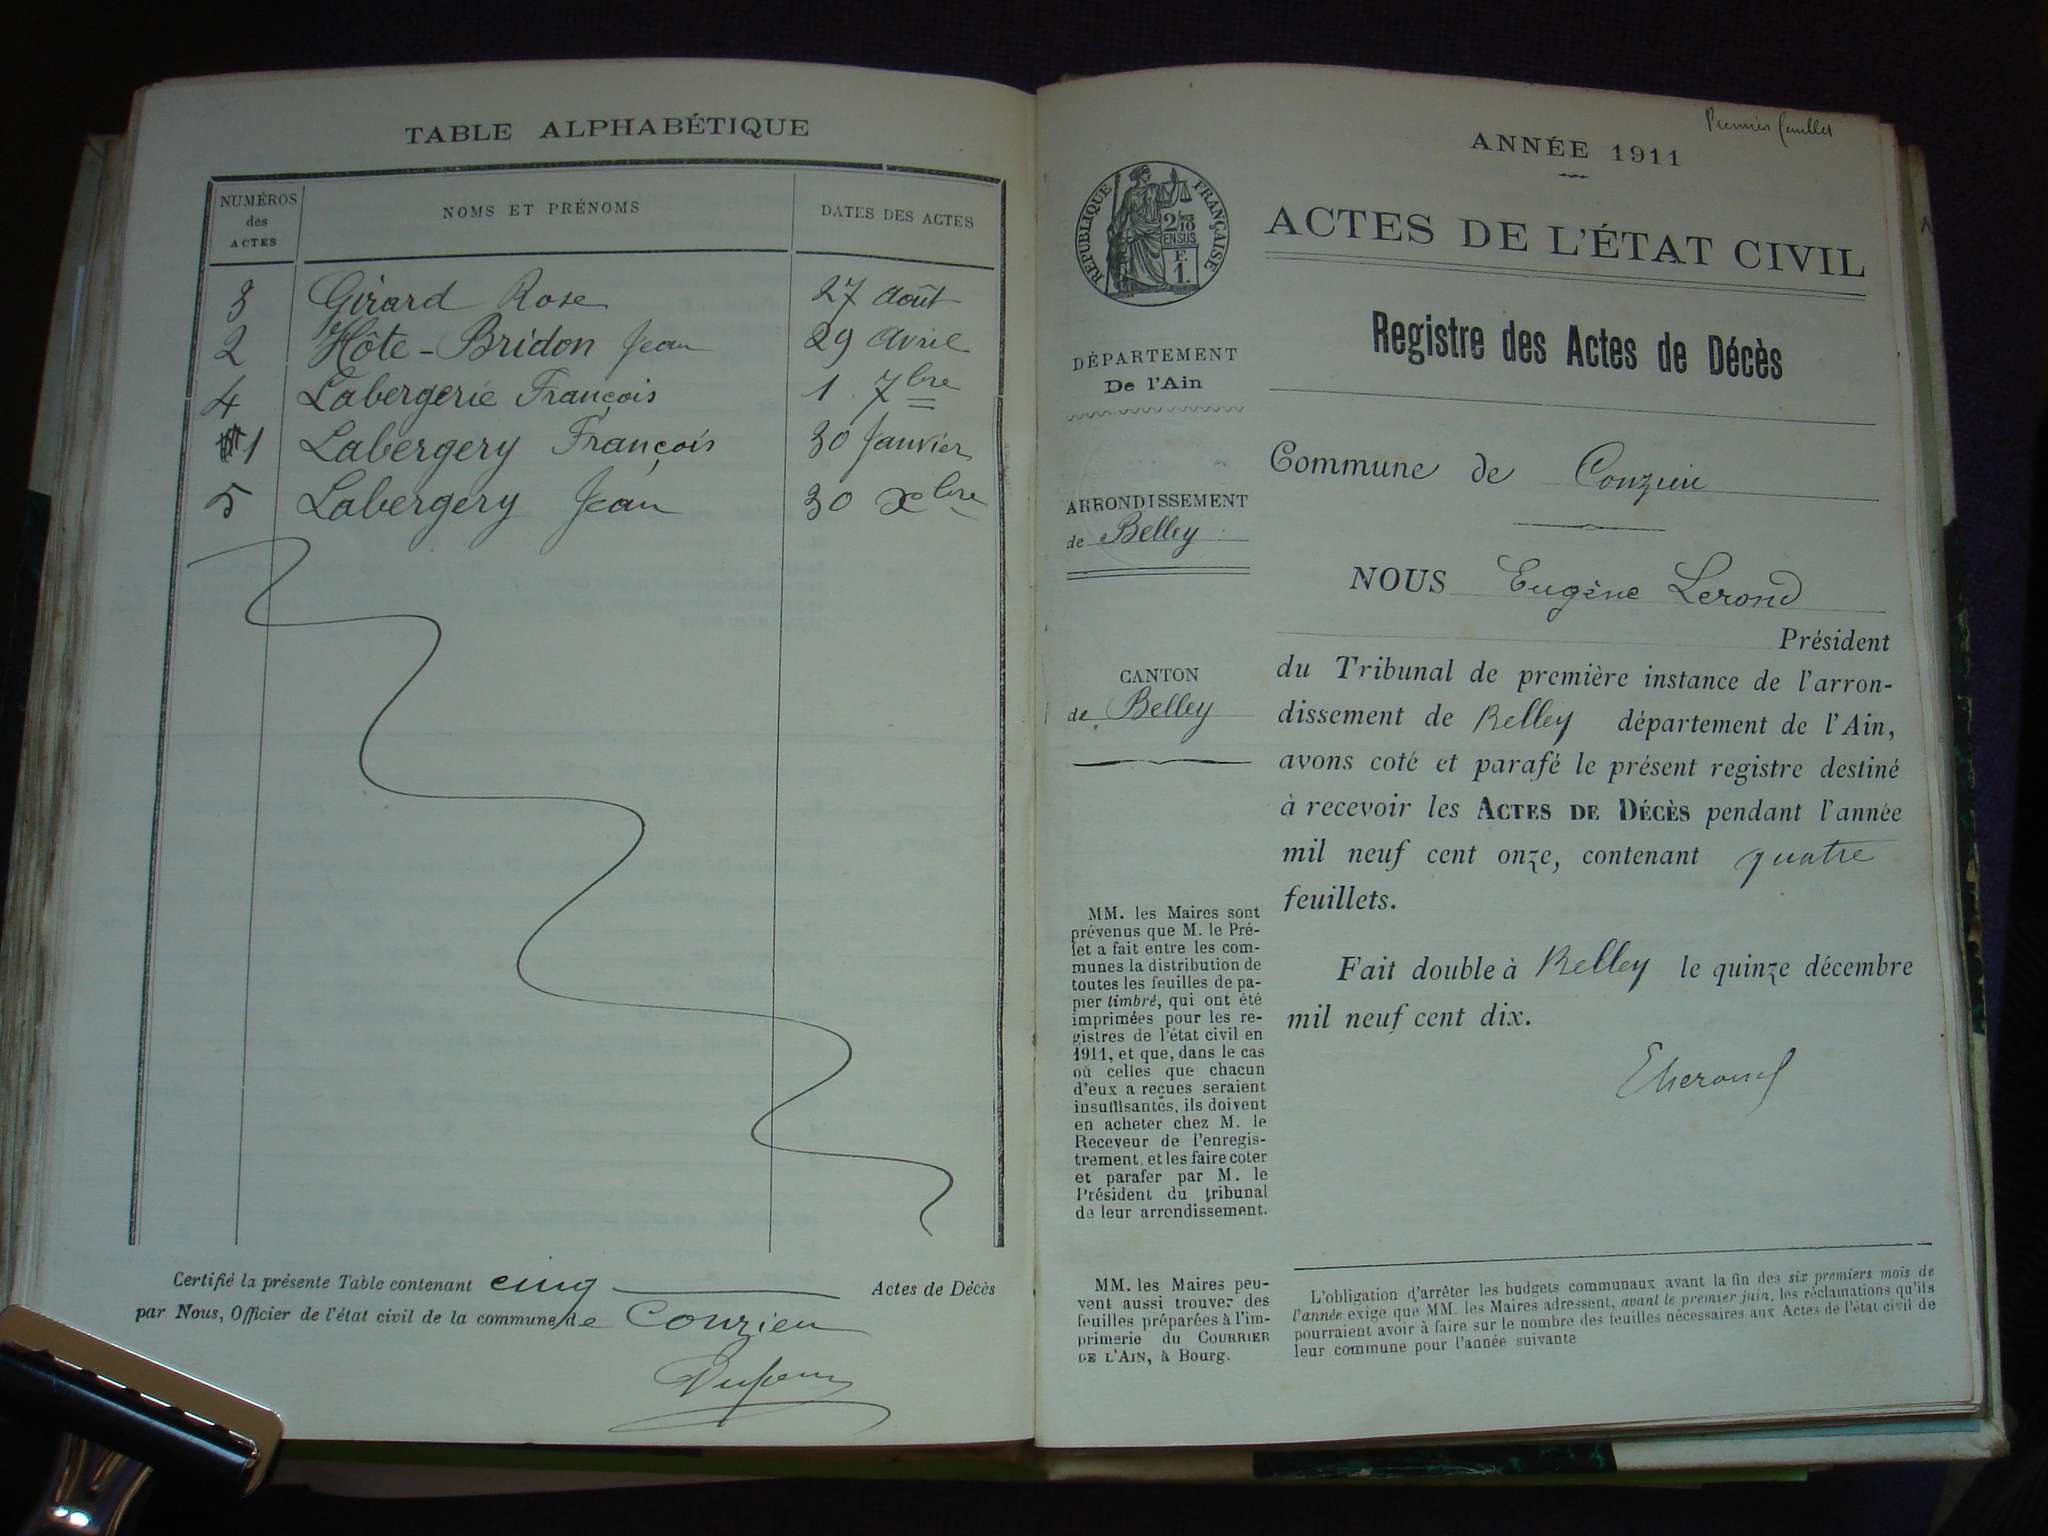 TABLE ALPHABÉTIQUE
NUMÉROS des ACTES NOMS ET PRÉNOMS DATES DES ACTES
3 Girard Rose 27 août
2 Hôte-Bridon Jean 29 avril
4 Labergerie François 1 7bre
1 Labergery François 30 Janvier
5 Labergery Jean 30 Xbre
Certifié la présente Table contenant cinq Actes de Décès
par Nous, Officier de l'état civil de la commune de Conzieu
Premier feuillet
ANNÉE 1911
RÉPUBLIQUE FRANÇAISE
2/10
EN SUS
F.
1.
ACTES DE L'ÉTAT CIVIL
Registre des Actes de Décès
DÉPARTEMENT
De l'Ain
Commune de Conzieu
ARRONDISSEMENT
de Belley
NOUS Eugène Lerond
Président
CANTON
de Belley
du Tribunal de première instance de l'arron-
dissement de Belley département de l'Ain,
avons coté et parafé le présent registre destiné
à recevoir les ACTES DE DÉCÈS pendant l'année
mil neuf cent onze, contenant quatre
feuillets.
Fait double à Belley le quinze décembre
mil neuf cent dix.
MM. les Maires sont
prévenus que M. le Pré-
fet a fait entre les com-
munes la distribution de
toutes les feuilles de pa-
pier timbré, qui ont été
imprimées pour les re-
gistres de l'état civil en
1911, et que, dans le cas
où celles que chacun
d'eux a reçues seraient
insuffisantes, ils doivent
en acheter chez M. le
Receveur de l'enregis-
trement, et les faire coter
et parafer par M. le
Président du tribunal
de leur arrondissement.
MM. les Maires peu-
vent aussi trouver des
feuilles préparées à l'im-
primerie du COURRIER
DE L'AIN, à Bourg.
L'obligation d'arrêter les budgets communaux avant la fin des six premiers mois de
l'année exige que MM. les Maires adressent, avant le premier juin, les réclamations qu'ils
pourraient avoir à faire sur le nombre des feuilles nécessaires aux Actes de l'état civil de
leur commune pour l'année suivante